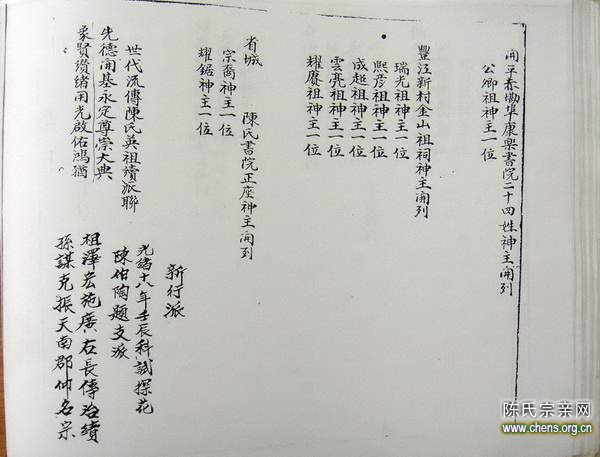 開平赤墈埠康樂書院二十四姓神主開列
公卿祖神主一位
豐泾新村金山祖祠神主開列
瑞光祖神主一位
熙彥祖神主一位
成超祖神主一位
雲亮祖神主一位
耀賡祖神主一位
省城 陳氏書院正座神主開列
宗裔神主一位
耀鋸神主一位
世代流傳陳氏英祖續派聯
先德開基永定尊崇大典
承賢纘緒用光啟佑鴻猷
新行派
光緒十八年壬辰科試探花
陳伯陶題支派
祖澤宏施廣右長傳治績
孫謀克振天南郡仰名宗
陈氏宗亲网
www.chens.org.cn